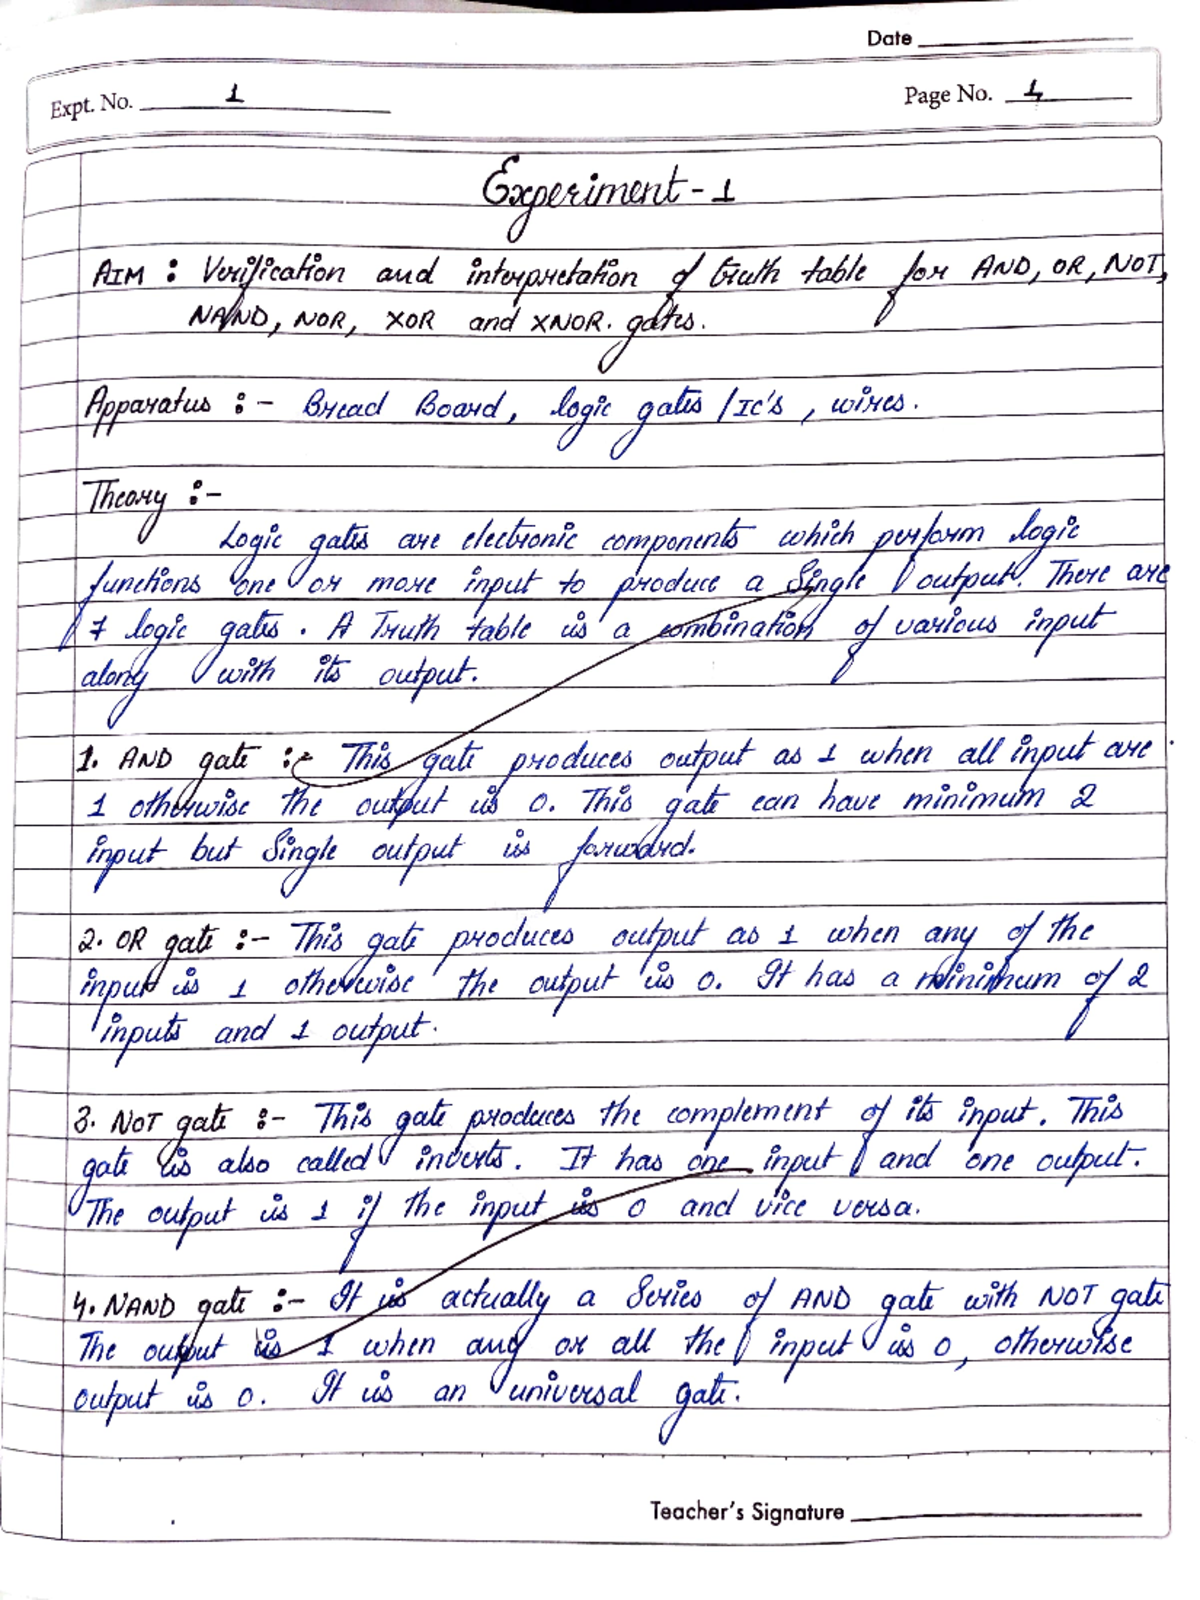 Date
Expt. No. 1
Page No. 1
Experiment - 1
AIM : Verification and interpretation of truth table for AND, OR, NOT,
NAND, NOR, XOR and XNOR. gates.
Apparatus :- Bread Board, logic gates / IC's , wires.
Theory :-
Logic gates are electronic components which perform logic
functions one or more input to produce a Single output. There are
7 logic gates. A Truth table is a combination of various input
along with its output.
1. AND gate :- This gate produces output as 1 when all input are
1 otherwise the output is 0. This gate can have minimum 2
input but Single output is forward.
2. OR gate :- This gate produces output as 1 when any of the
input is 1 otherwise the output is 0. It has a minimum of 2
inputs and 1 output.
3. NOT gate :- This gate produces the complement of its input. This
gate is also called inverts. It has one input and one output.
The output is 1 if the input is 0 and vice versa.
4. NAND gate :- It is actually a Series of AND gate with NOT gate
The output is 1 when any or all the input is 0, otherwise
output is 0. It is an universal gate.
Teacher's Signature